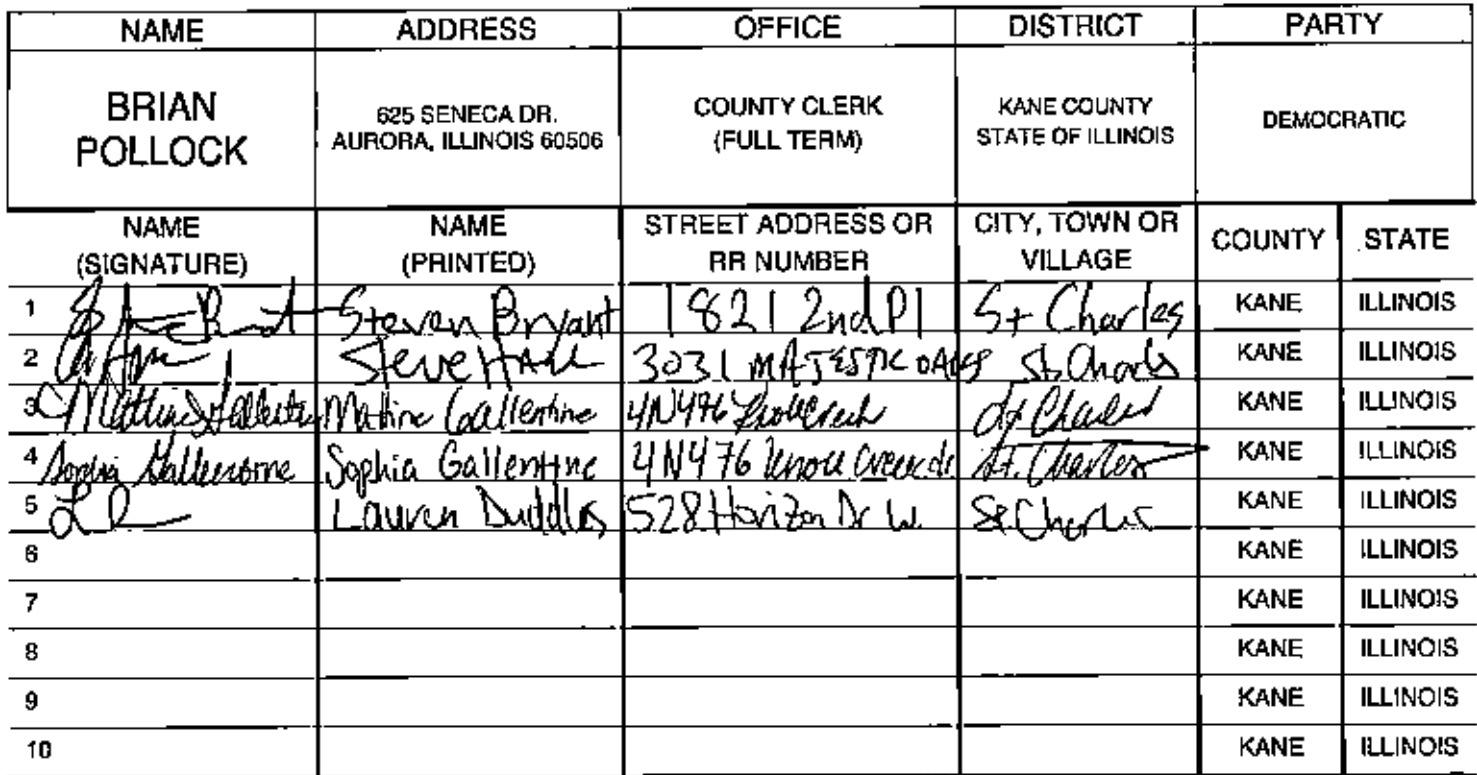 NAME ADDRESS OFFICE DISTRICT PARTY
BRIAN POLLOCK 625 SENECA DR. AURORA, ILLINOIS 60506 COUNTY CLERK (FULL TERM) KANE COUNTY STATE OF ILLINOIS DEMOCRATIC
NAME (SIGNATURE) NAME (PRINTED) STREET ADDRESS OR RR NUMBER CITY, TOWN OR VILLAGE COUNTY STATE
1 Steven Bryant 1821 2nd Pl St Charles KANE ILLINOIS
2 Steve Hall 3031 MAJESTIC OAKS St. Charles KANE ILLINOIS
3 Gallentine 4N476 St Charles KANE ILLINOIS
4 Sophia Gallentine Sophia Gallentine 4N476 Knoll Creek dr St. Charles KANE ILLINOIS
5 Lauren Duddles 528 Horizon Dr W. St. Charles KANE ILLINOIS
6 KANE ILLINOIS
7 KANE ILLINOIS
8 KANE ILLINOIS
9 KANE ILLINOIS
10 KANE ILLINOIS